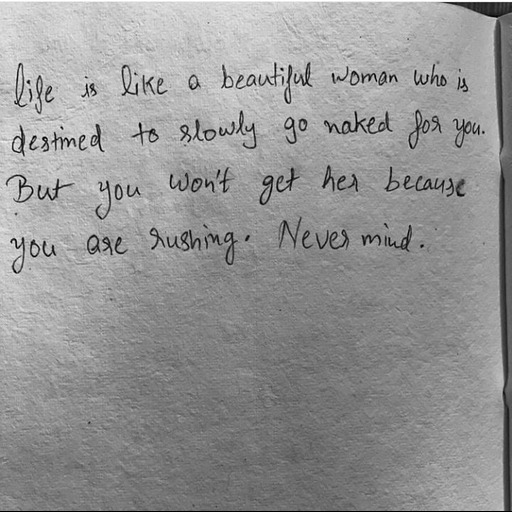 life is like a beautiful woman who is
destined to slowly go naked for you.
But you won't get her because
you are rushing. Never mind.